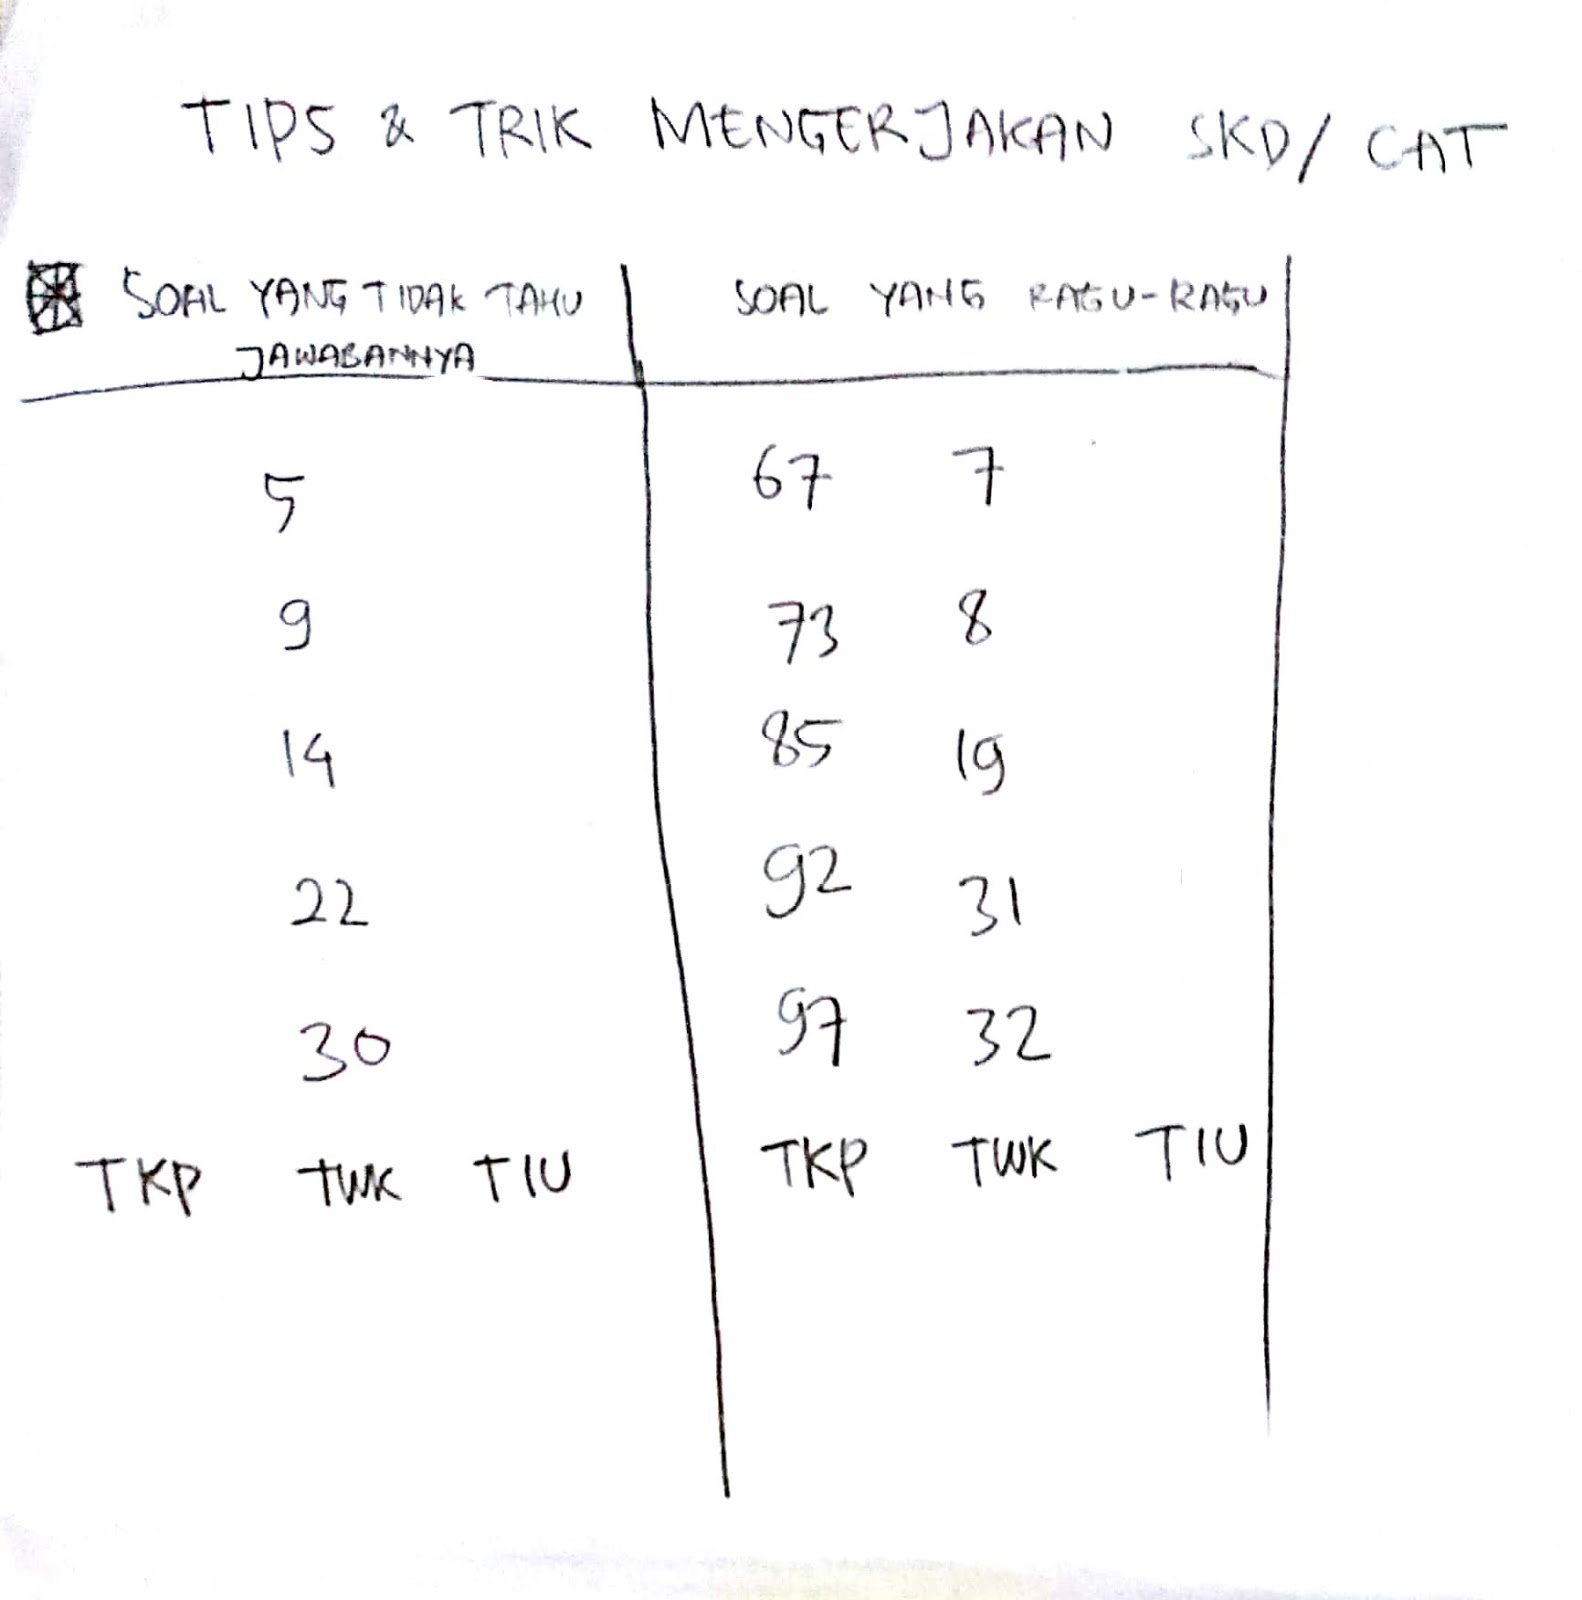 TIPS & TRIK MENGERJAKAN SKD/ CAT
SOAL YANG TIDAK TAHU JAWABANNYA
SOAL YANG RAGU-RAGU
5 67 7
9 73 8
14 85 19
22 92 31
30 97 32
TKP TWK TIU TKP TWK TIU